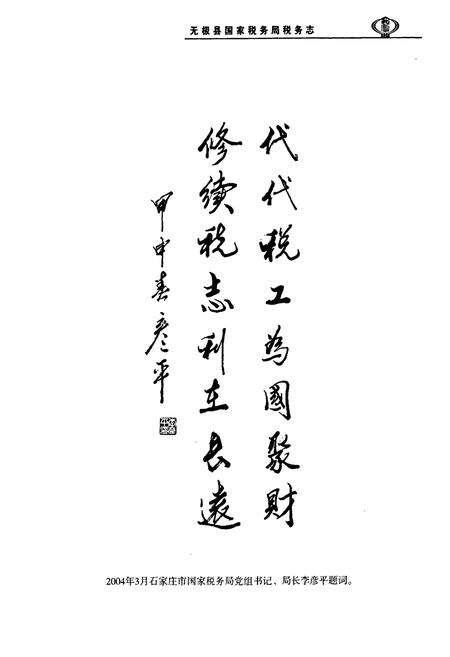 无极县国家税务局税务志
代代税工为國聚财
修续税志利在长遠
甲申春彦平
2004年3月石家庄市国家税务局党组书记、局长李彦平题词。